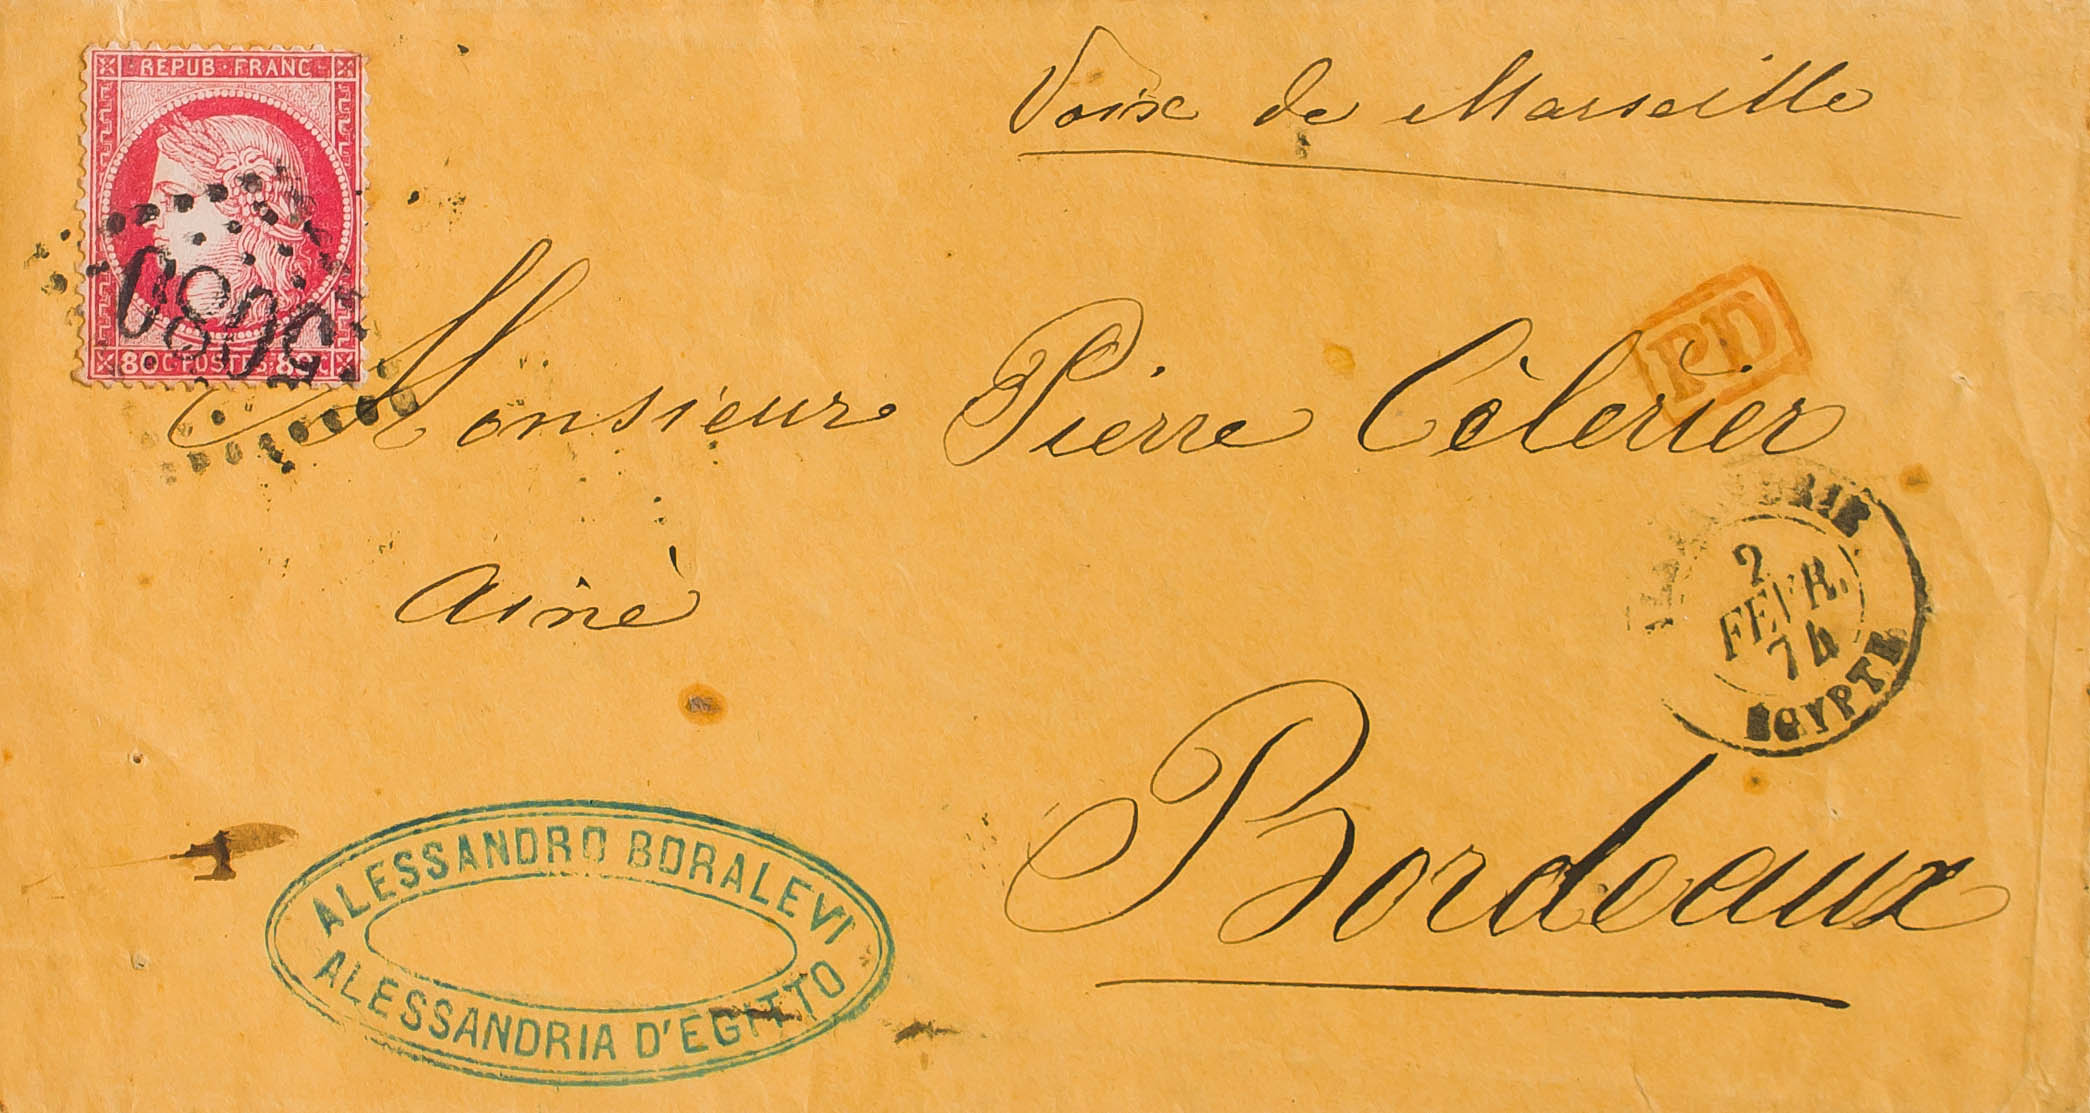 REPUB · FRANC
80 C · POSTES · 80 C
5080
Voix de Marseille
PD
Monsieur Pierre Cèlerier
Ainè
ALEXANDRIE
2
FEVR.
74
EGYPTE
Bordeaux
ALESSANDRO BORALEVI
ALESSANDRIA D'EGITTO